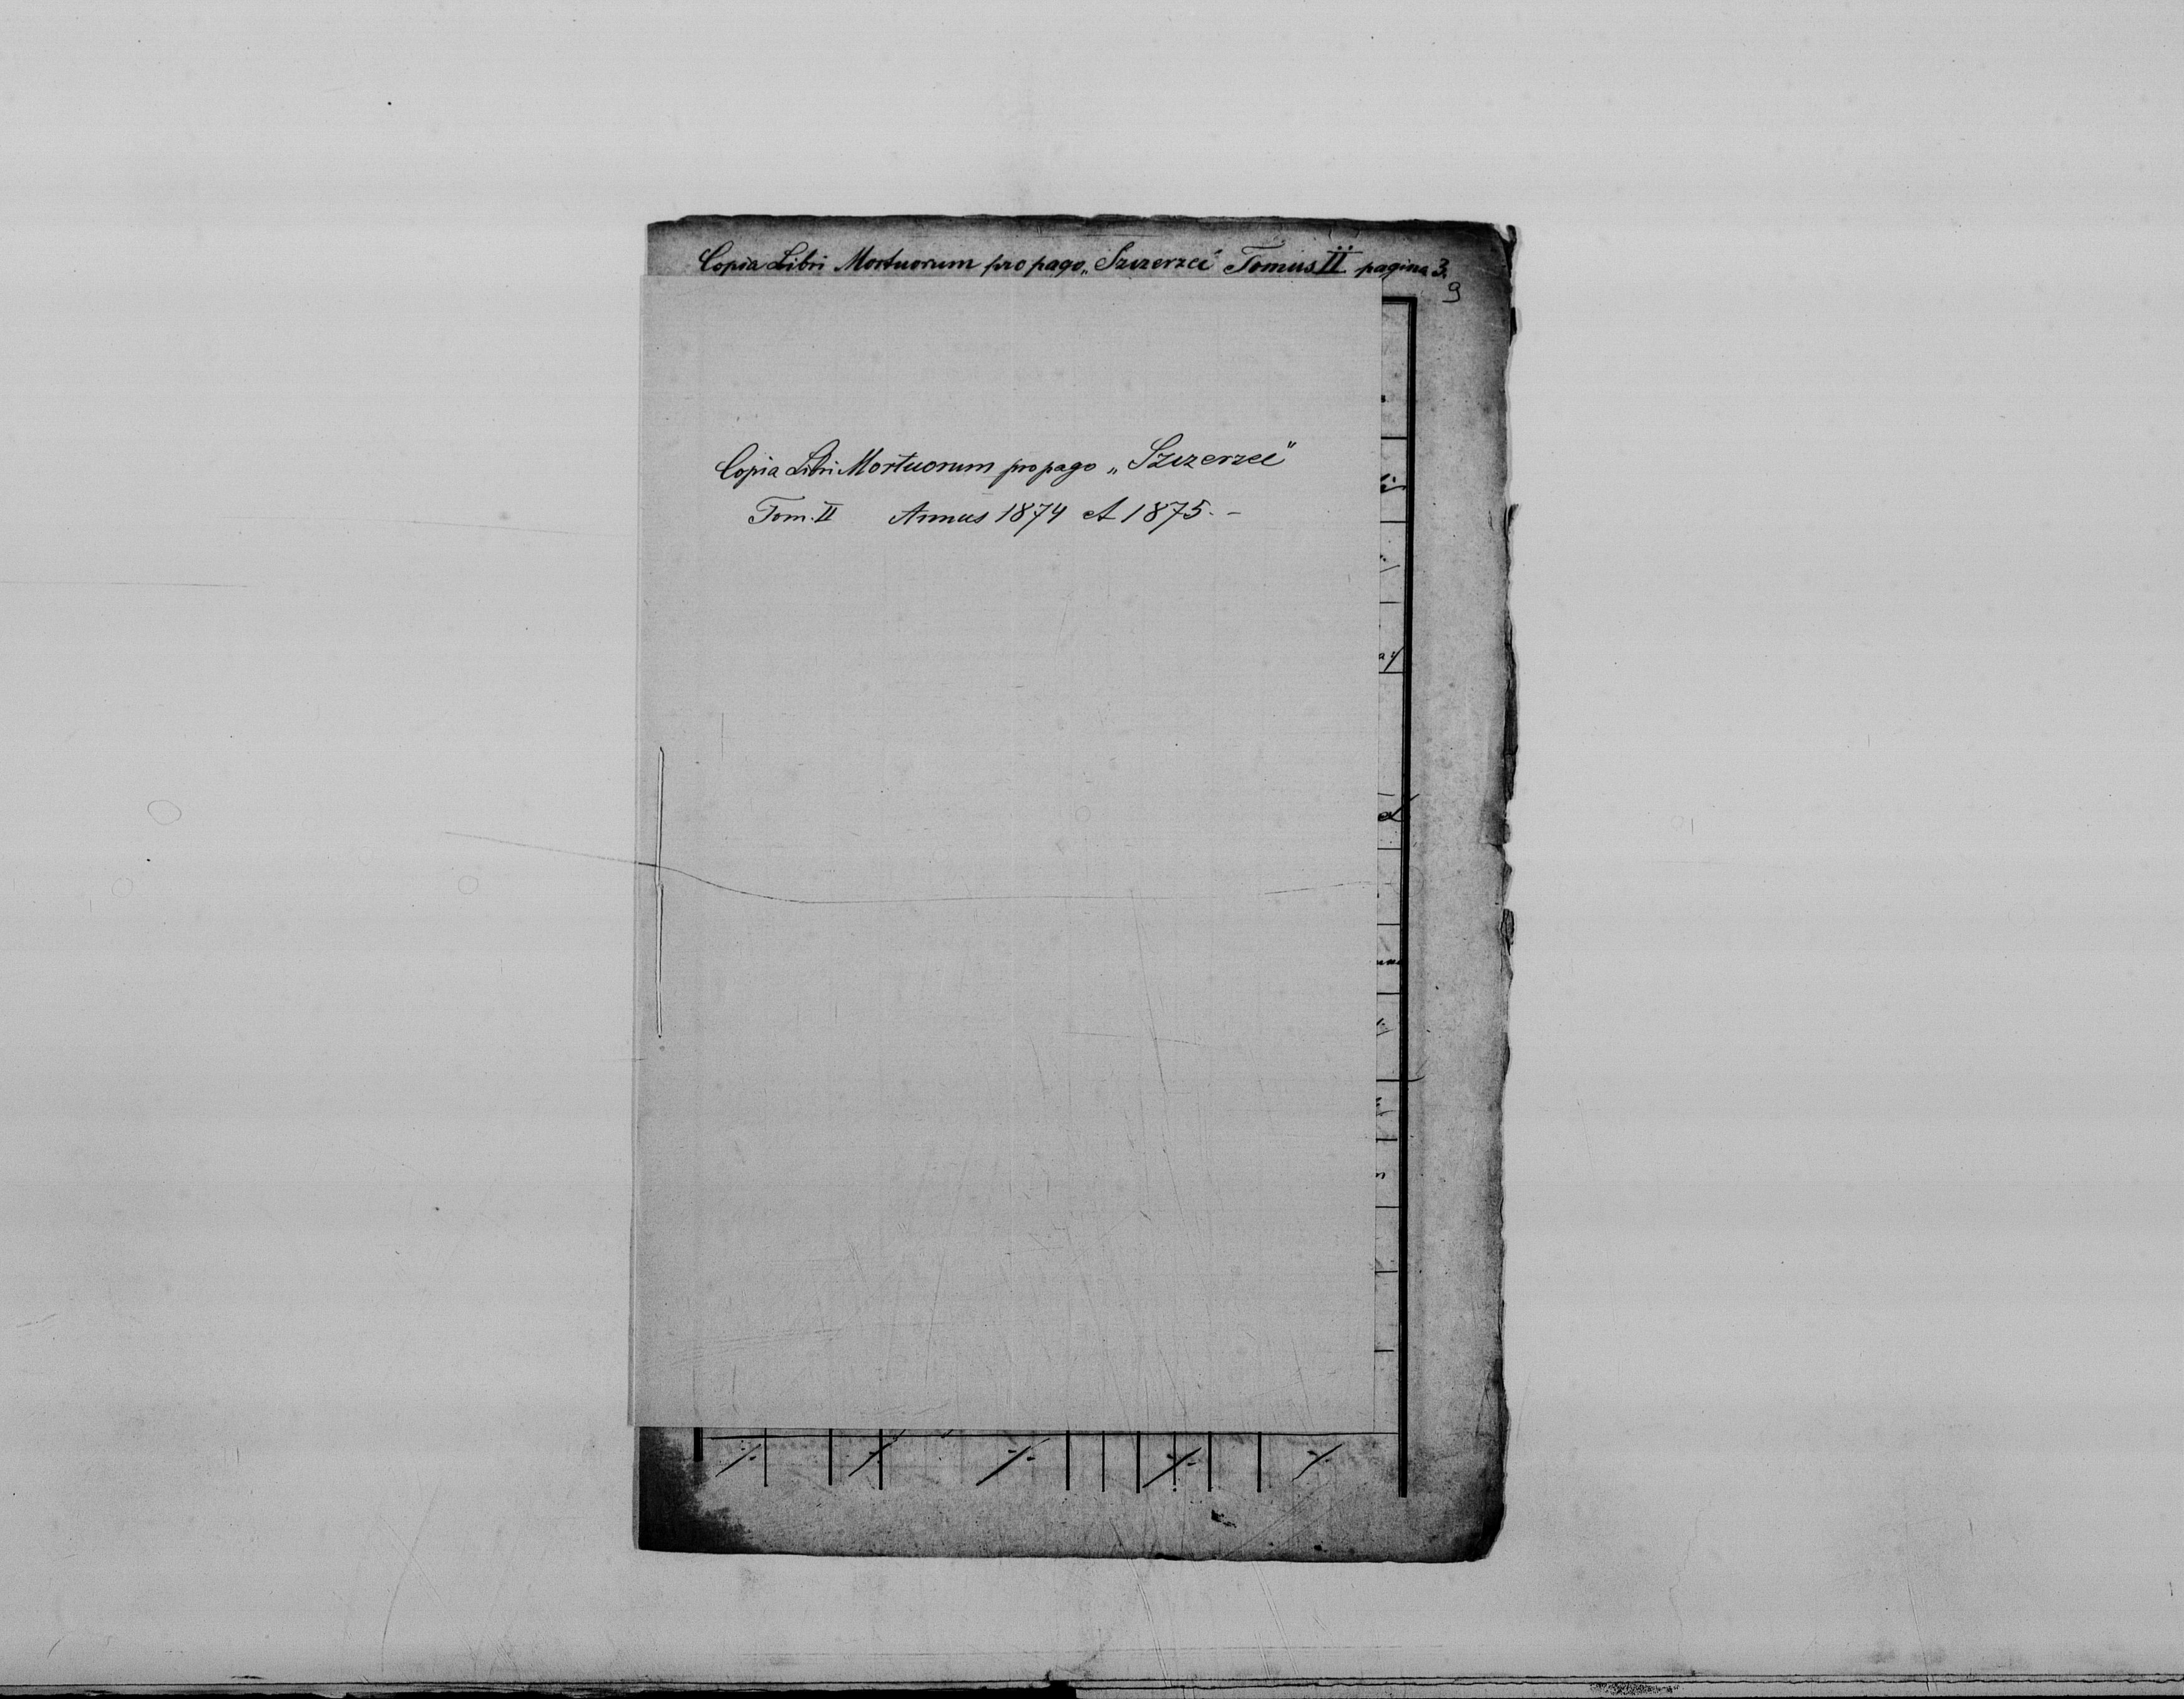 Copia Libri Mortuorum pro pago „Szczerzec" Tomus II pagina 3.
9
Copia Libri Mortuorum pro pago „Szczerzec"
Tom. II Annus 1874 et 1875. -